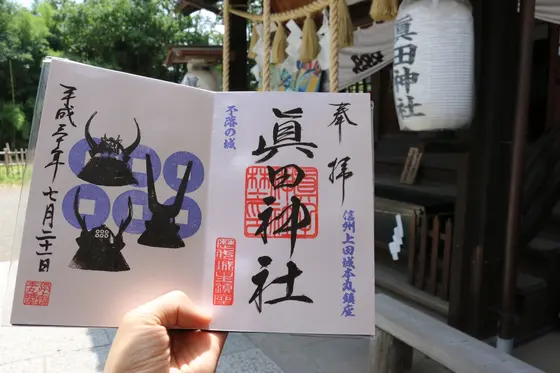 奉拝
信州上田城本丸鎮座
眞田神社
不落の城
平成三十年七月二十一日
眞田神社